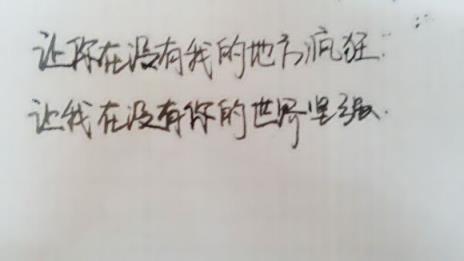 让你在没有我的地方疯狂.
让我在没有你的世界坚强.